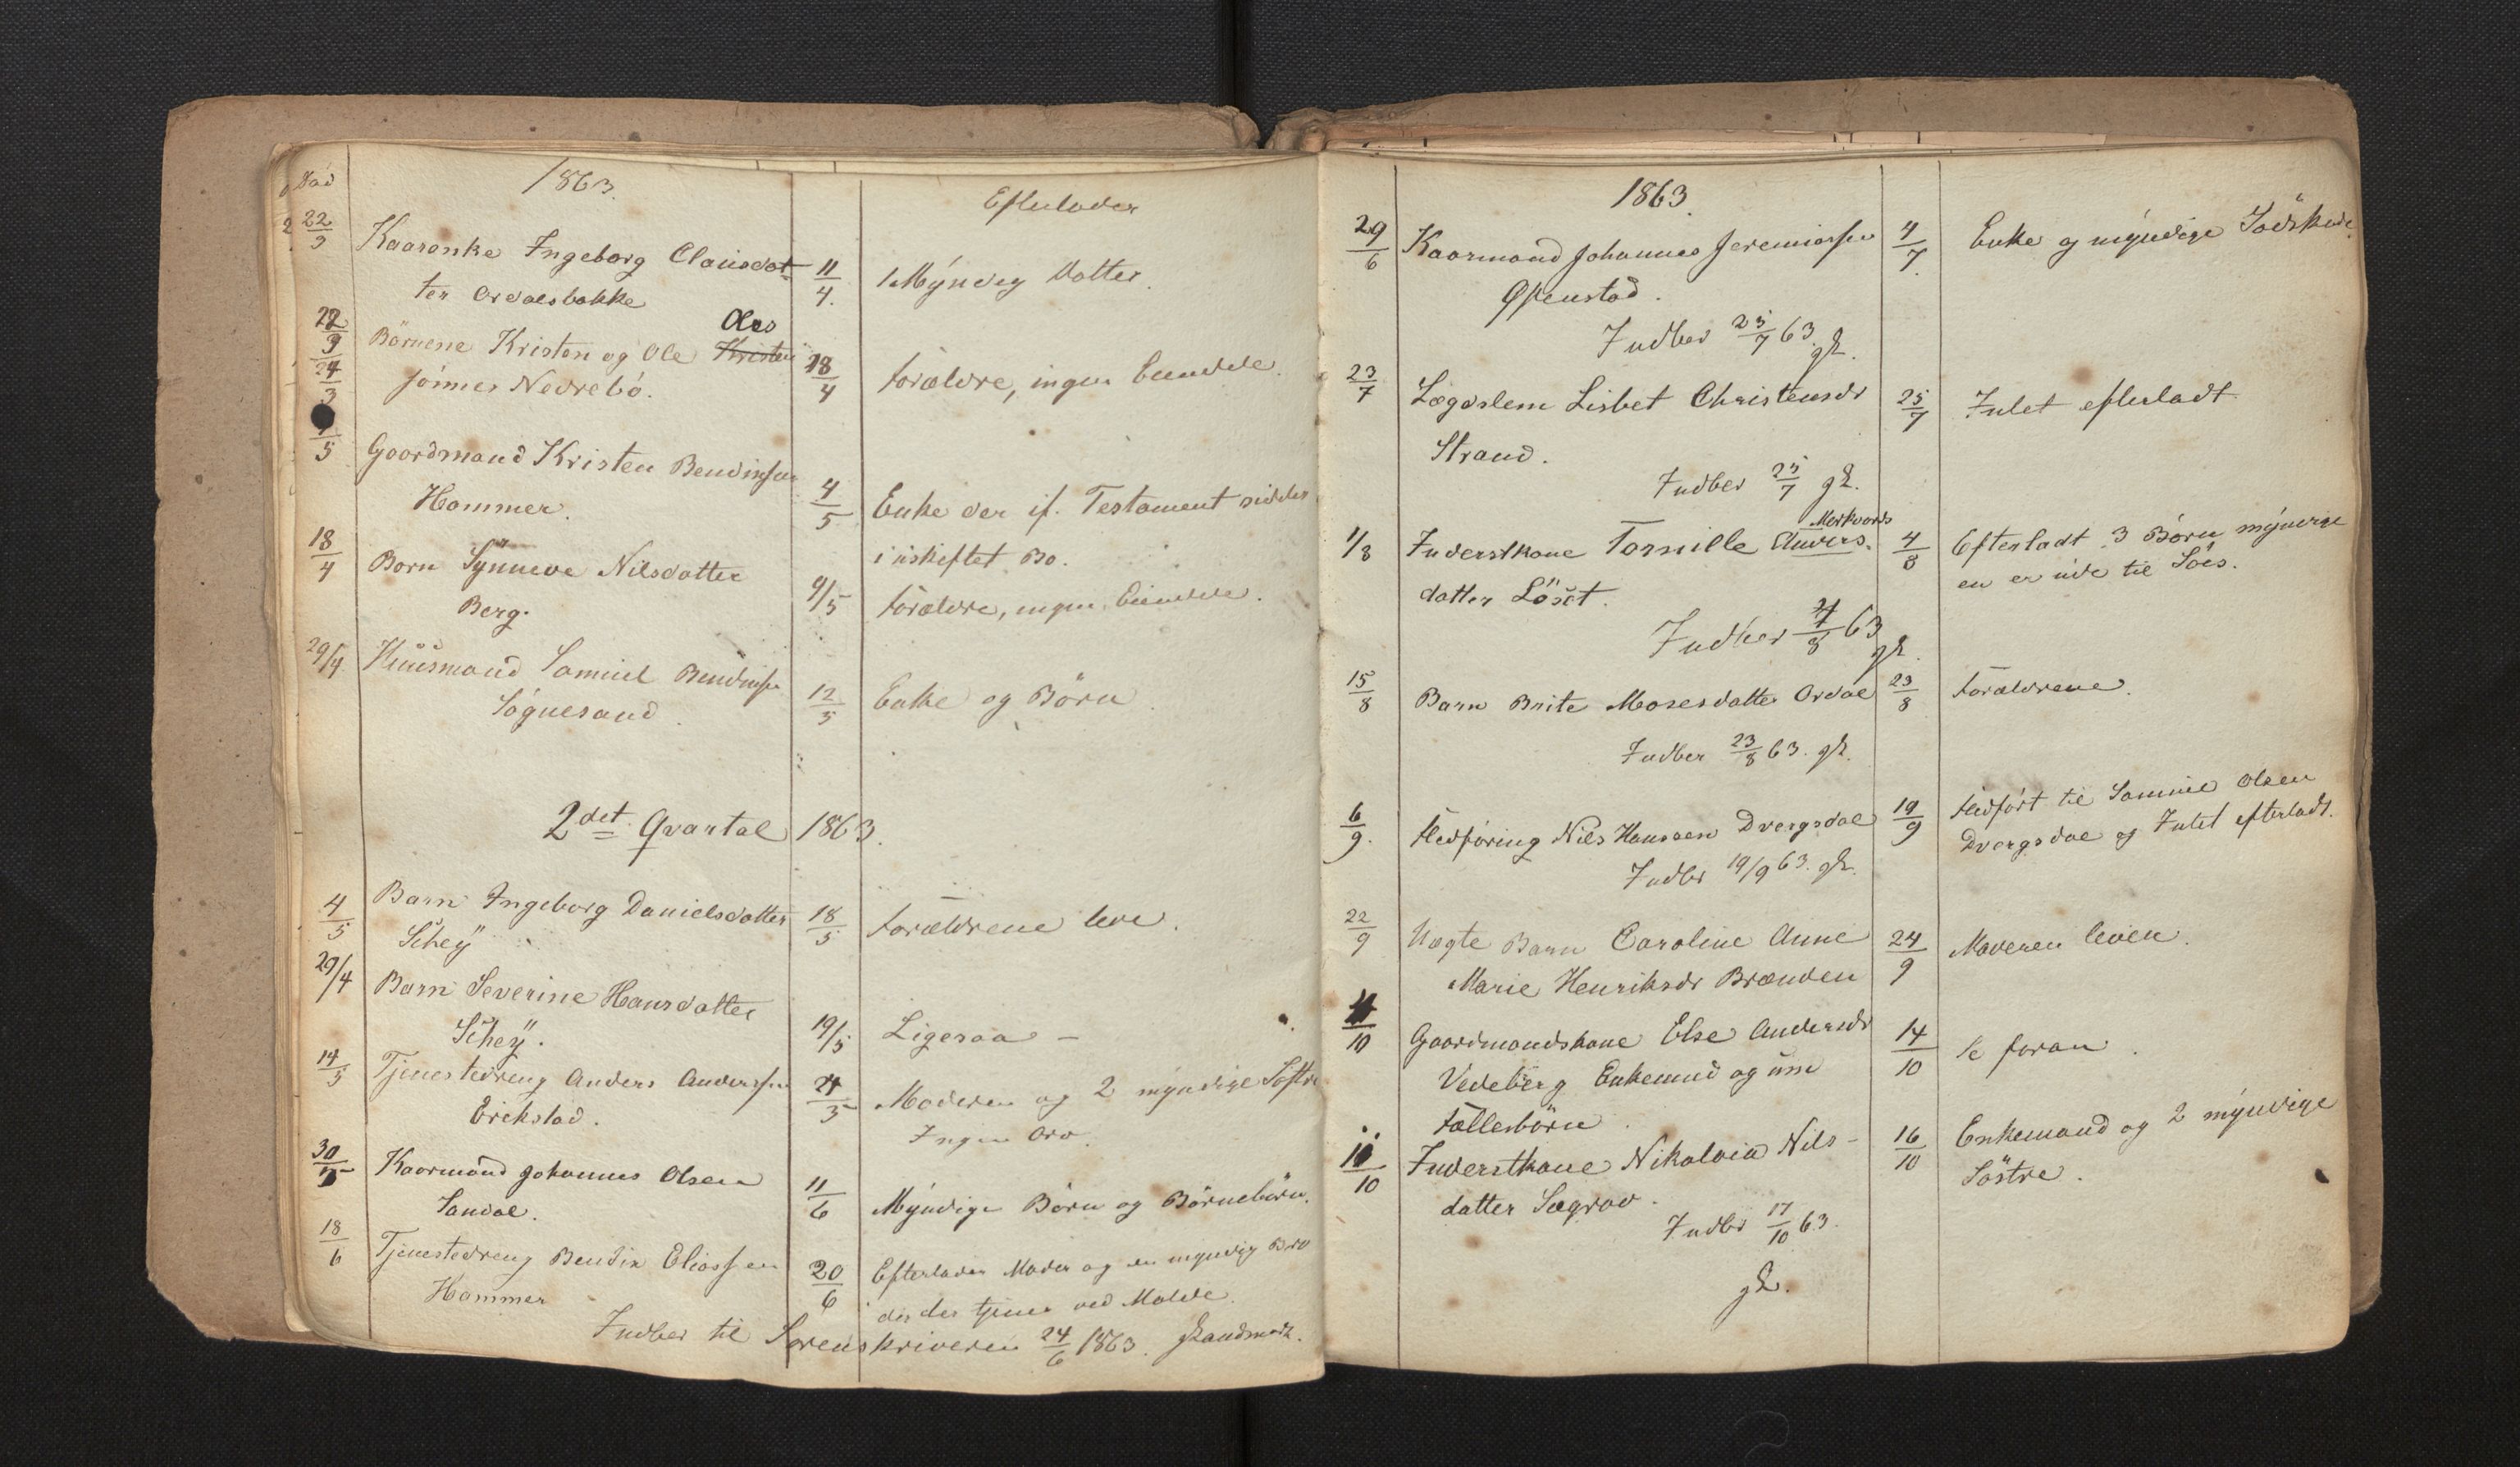 Död 1863 Efterlader
22/3 Kaarenke Ingeborg Clausdat-
ter Ordalsbakke 11/4. 1 Myndig Datter.
22/3 Börnene Kristen og Ole Kristen Oles
24/3 sönner Nedrebö. 18/4 Forældre, ingen Eiendele.
1/5 Gaardmand Kristen Bendixsen
Hammer. 4/5 Enke der if. Testament sidder
i uskiftet Bo.
18/4 Barn Synneve Nilsdatter
Berg. 9/5 Forældre, ingen Eiendele.
29/4. Huusmand Samuel Bendixsen
Sögnesand. 12/5 Enke og Börn.
2det Qvartal 1863.
4/5 Barn Ingeborg Danielsdatter 18/5 Forældrene leve.
Schey
29/4 Barn Severine Hansdatter
Schey. 19/5 Ligesaa –
14/5 Tjenestedreng Anders Anderssen 24/5 Moderen og 2 myndige Söstre
Erikstad. Ingen Arv.
30/5 Kaarmand Johannes Olsen
Sandal. 11/6 Myndige Börn og Börnebörn.
18/6 Tjenestedreng Bendix Eliassen 20/6 Efterlader Moder og en myndig Bro
Hammer der der tjener ved Molde.
Indber til Sorenskriveren 24/6 1863. Landmark.
1863
29/6 Kaarmand Johannes Jeremiassen 4/7. Enke og myndige Södskende.
Öfenstad.
Indber 25/7 63.
23/7 Lægdslem Lisbet Christensdr 25/7 Intet efterladt.
Strand.
Indber 25/7
Markvords
1/8 Inderstkone Tornille Anders. 4/8 Efterladt 3 Börn myndige
datter Löset. en er ude til Söes.
Indber 4/8 63
15/8 Barn Brite Mosesdatter Ordal 23/8 Forældrene.
Indber 23/8 63.
6/9. Fledföring Nils Hanssen Dvergsdal 19/9 Fledfört til Samuel Olsen
Dvergsdal og Intet efterladt.
Indber 19/9 63.
22/9 Uægte Barn Caroline Anne 24/9 Moderen leven.
Marie Henriksdr Brænden
4/10 Gaardmandskone Else Andersdr 14/10 Se foran.
Vedeberg Enkemand og um
Fællesbörn.
11/10 Inderstkone Nikolaia Nils- 16/10 Enkemand og 2 myndige
datter Sægrov. Söstre.
Indber 17/10 63.